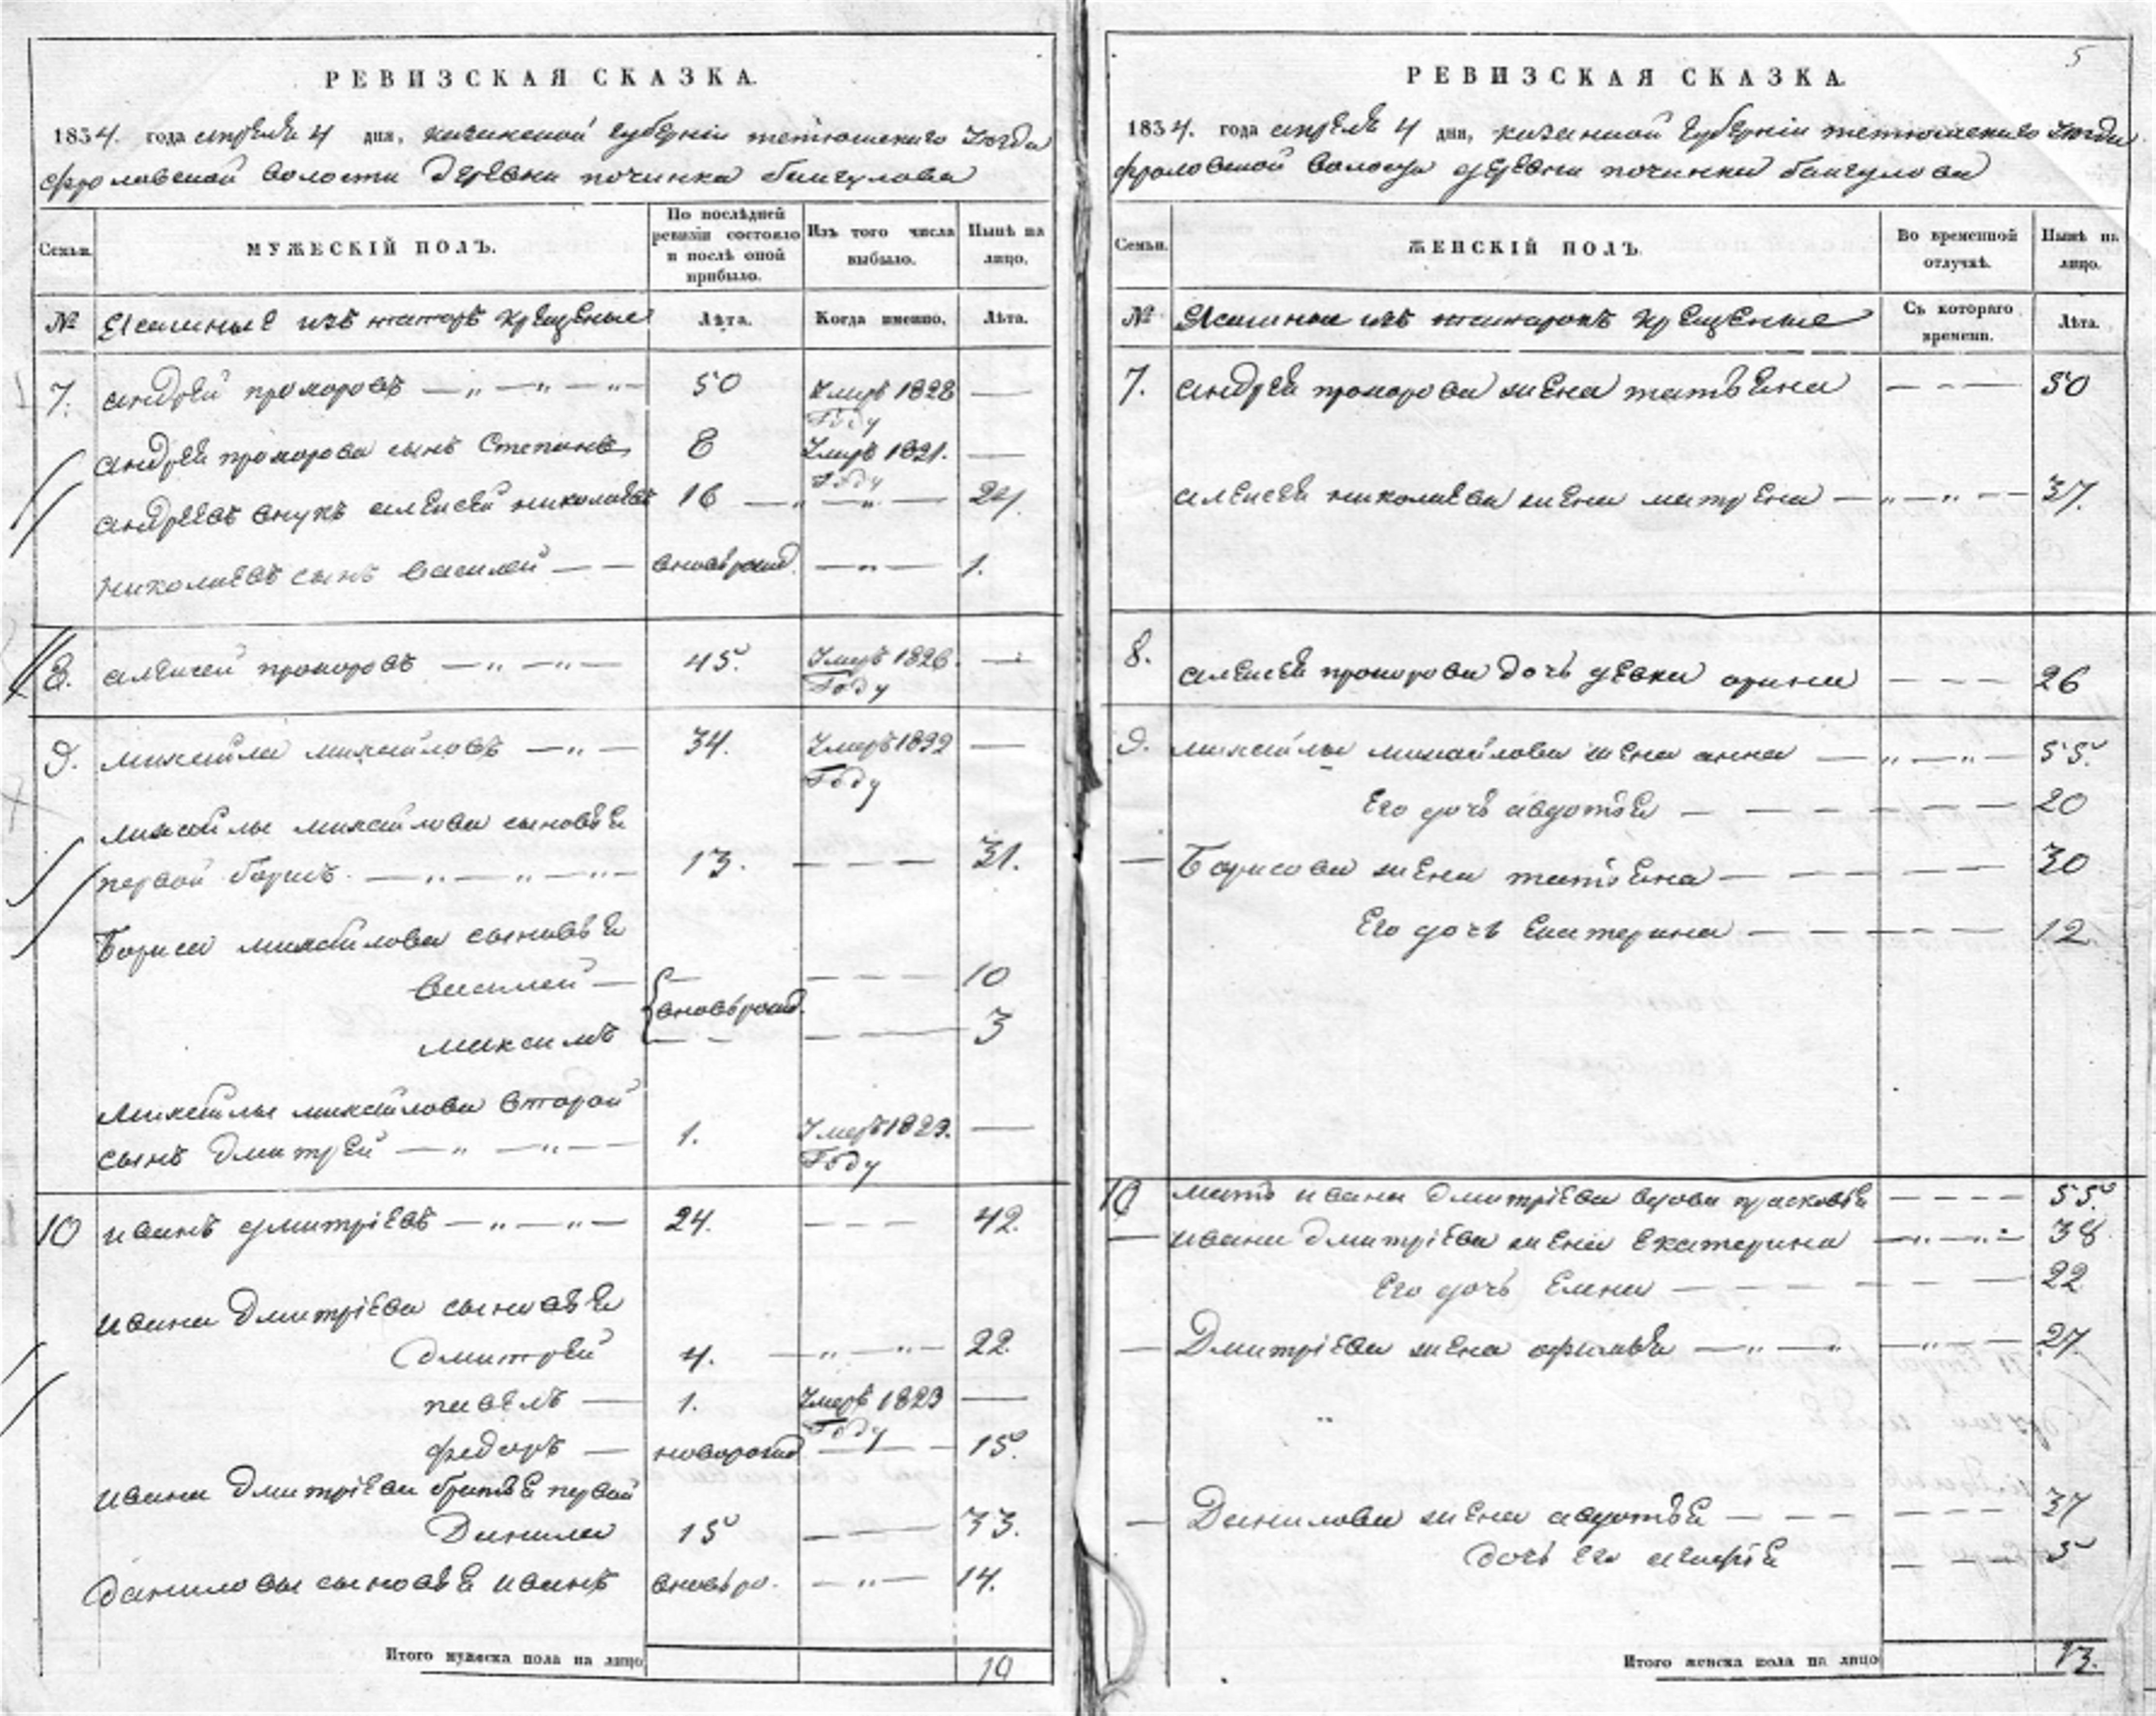 РЕВИЗСКАЯ СКАЗКА.
1834. года апреля 4 дня, казанской губернии тетюшскаго уезда
фроловской волости деревни починка баигулова
Семьи.
МУЖЕСКІЙ ПОЛЪ.
По послѣдней ревизіи состояло и послѣ оной прибыло.
Изъ того числа выбыло.
Нынѣ на лицо.
№ Ясашные изъ татаръ крещеные
Лѣта. Когда именно. Лѣта.
7. андрей прохоровъ — „ — „ — „ — 50 умеръ 1828 Году —
андрея прохорова сынъ Степанъ 8 умеръ 1821. году —
андреевъ внукъ алексей николаевъ 16 — „ — „ — 24.
николаевъ сынъ василей — — вновьрожд. — „ — 1.
8. алексей прохоровъ — „ — „ — 45. умеръ 1826. Году —
9. михаила михайловъ — „ — 34. умеръ 1832 Году —
михайлы михайлова сыновья
первой борисъ — „ — „ — „ — 13. — — — 31.
Бориса михайлова сыновья
василей — — — — — 10
вновьрожд.
максимъ — — — — — 3
михайлы михайлова второй
сынъ дмитрей — „ — „ — 1. умеръ 1823. Году —
10 иванъ дмитріевъ — „ — „ — 24. — — — 42.
ивана дмитріева сыновья
дмитрей 4. — „ — „ — 22.
павелъ — 1. умеръ 1823 Году —
федоръ — новорожд — — — 15.
ивана дмитріева братья первой
Данила 15 — — — 33.
даниловы сыновья иванъ вновьро. — „ — 14.
Итого мужеска пола на лицо 10
5
РЕВИЗСКАЯ СКАЗКА.
1834. года апреля 4 дня, казанской губерніи тетюшскаго уезда
фроловской волости деревни починка баигулова
Семьи.
ЖЕНСКІЙ ПОЛЪ.
Во временной отлучкѣ.
Нынѣ на лицо.
№ Ясашныя изъ татарокъ крещеные
Съ котораго времени.
Лѣта.
7. андрея прохорова жена татьяна — - — 50
алексея николаева жена матрена — „ — „ — — 37.
8. алексея прохорова дочь девка орина — — — 26
9. михайлы михайлова жена анна — „ — „ — 55.
Его дочь авдотья — — — — — 20
— Борисова жена татьяна — — — — — 30
Его дочь Екатерина — — — — — 12
10 мать ивана дмитріева вдова прасковья — — — — 55.
— ивана дмитріева жена Екатерина — „ — „ — 38
Его дочь Елена — — — — — — 22
— Дмитріева жена офимья — „ — „ — „ — — 27
„
— Данилова жена авдотья — — — — — — 37
дочь его — — — 5
Итого женска пола на лицо 13.